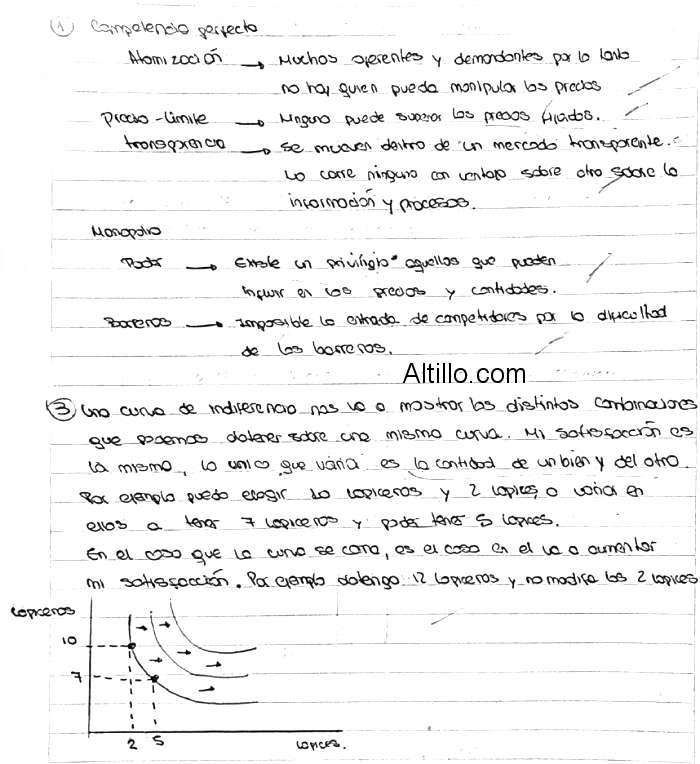 ① Competencia perfecta
Atomización → Muchos oferentes y demandantes por lo tanto
no hay quien pueda manipular los precios
Precio-Límite → Ninguno puede superar los precios fijados.
transparencia → Se mueven dentro de un mercado transparente.
Lo corre ninguno con ventaja sobre otro sobre la
información y procesos.
Monopolio
Poder → Existe un priviligio" aquellos que pueden
influir en los precios y cantidades.
Barreras → Imposible la entrada de competidores por la dificultad
de las barreras.
Altillo.com
③ Una curva de indiferencia nos va a mostrar las distintas combinaciones
que podemos obtener sobre una misma curva. Mi satisfacción es
la misma, lo unico que varia es la cantidad de un bien y del otro.
Por ejemplo puedo elegir 10 lapiceros y 2 lapices o variar en
ellos a tener 7 lapiceros y poder tener 5 lapices.
En el caso que la curva se corra, es el caso en el va a aumentar
mi satisfacción. Por ejemplo obtengo 12 lapiceros y no modifico los 2 lapices
lapiceros
10
7
2 5 lapices.